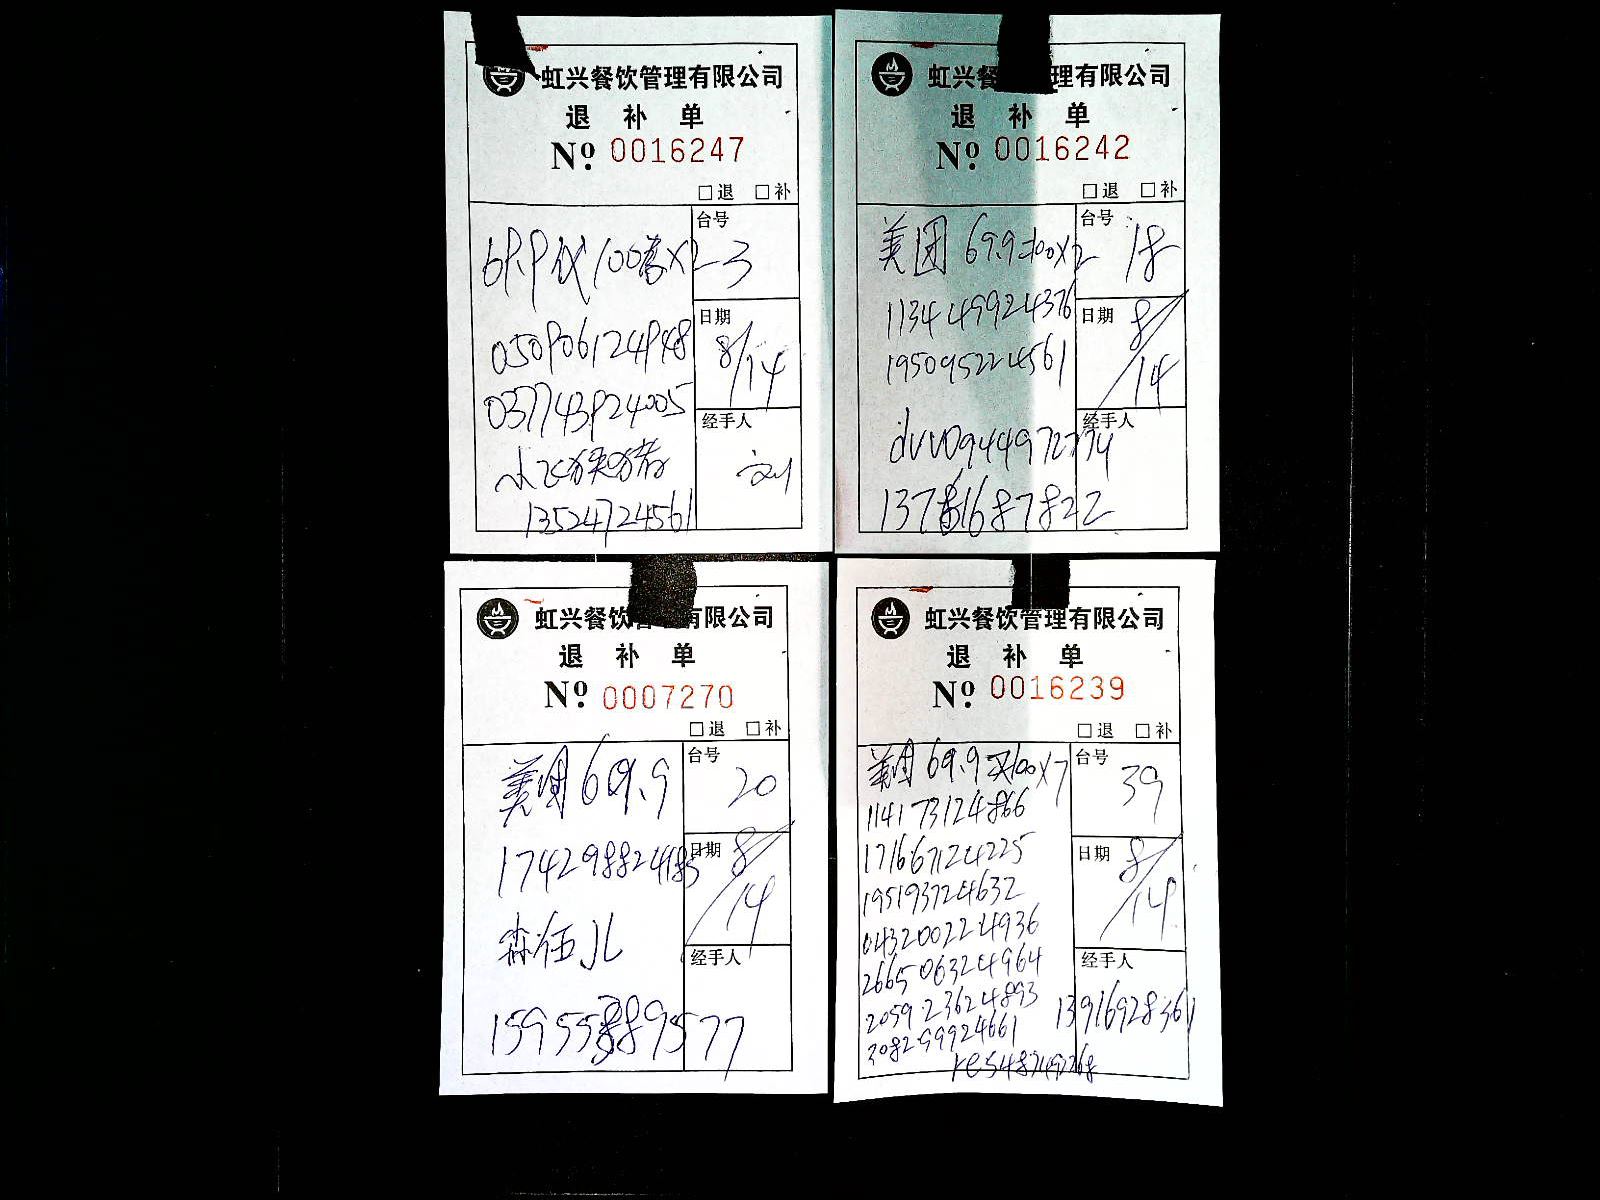 虹兴餐饮管理有限公司
退 补 单
No. 0016247
□退 □补
台号
3
日期
8/14
经手人
刘
050906124948
037743924005
13524724561
虹兴餐 理有限公司
退 补 单
No. 0016242
□退 □补
美团 69.9 100×2
台号
18
113449924376
日期
8/14
195095224561
经手人
dvv0944972774
虹兴餐饮 有限公司
退 补 单
No. 0007270
□退 □补
美团 69.9
台号
20
174298824185
日期
8/14
森伍JL
经手人
虹兴餐饮管理有限公司
退 补 单
No. 0016239
□退 □补
美团 69.9买100×7
台号
39
114173124866
171667124225
日期
8/14
195193724632
043200224936
266506324964
经手人
205923624893
13916928361
308259924661